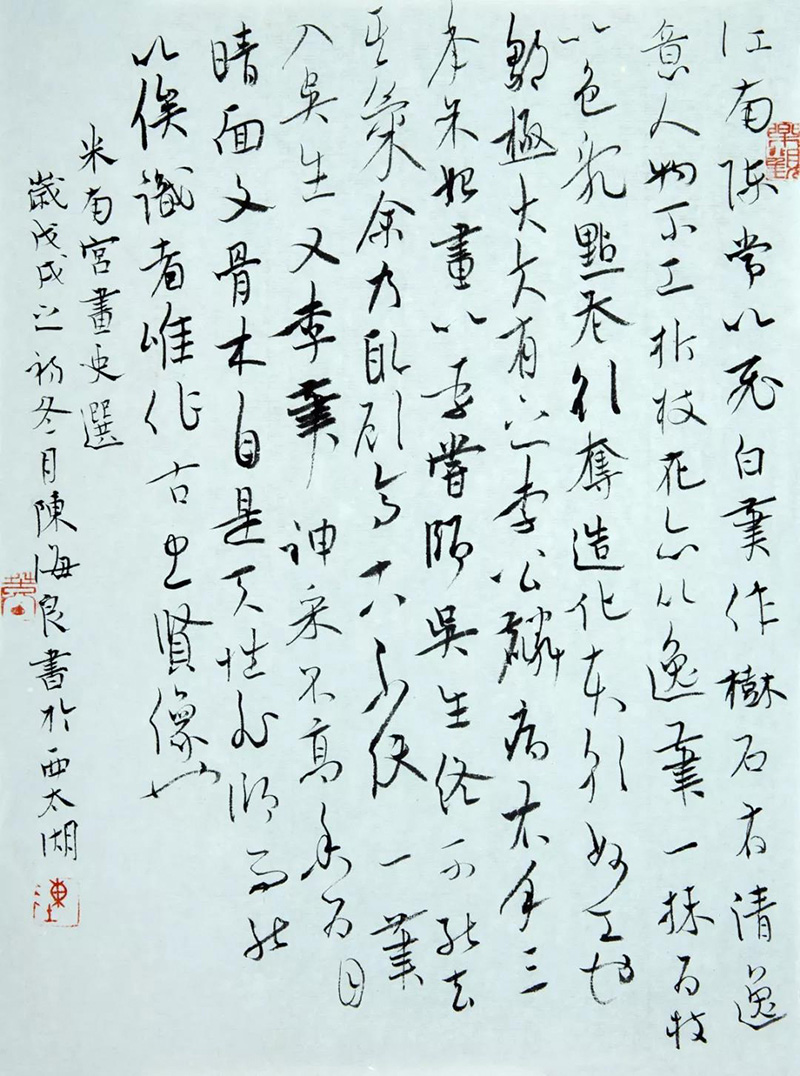 江南陳常以飛白筆作樹石有清逸
意人物不工折枝花亦以逸筆一抹為枝
以色亂點花欲奪造化本朝妙工也
大夫有之李公麟病右手三
年余始畫以李嘗師吳生終不能去
其氣余乃取顧高古不使一筆
入吳生又李筆神采不高余為目
睛面文骨木自是天性非師而能
以俟識者唯作古忠賢像也
米南宮畫史選
歲戊戌之初冬月陳海良書於西太湖